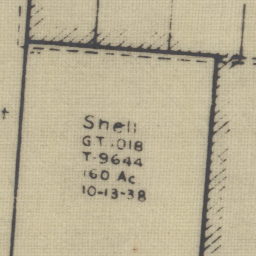 Shell
GT.018
T-9644
160 Ac
10-13-38